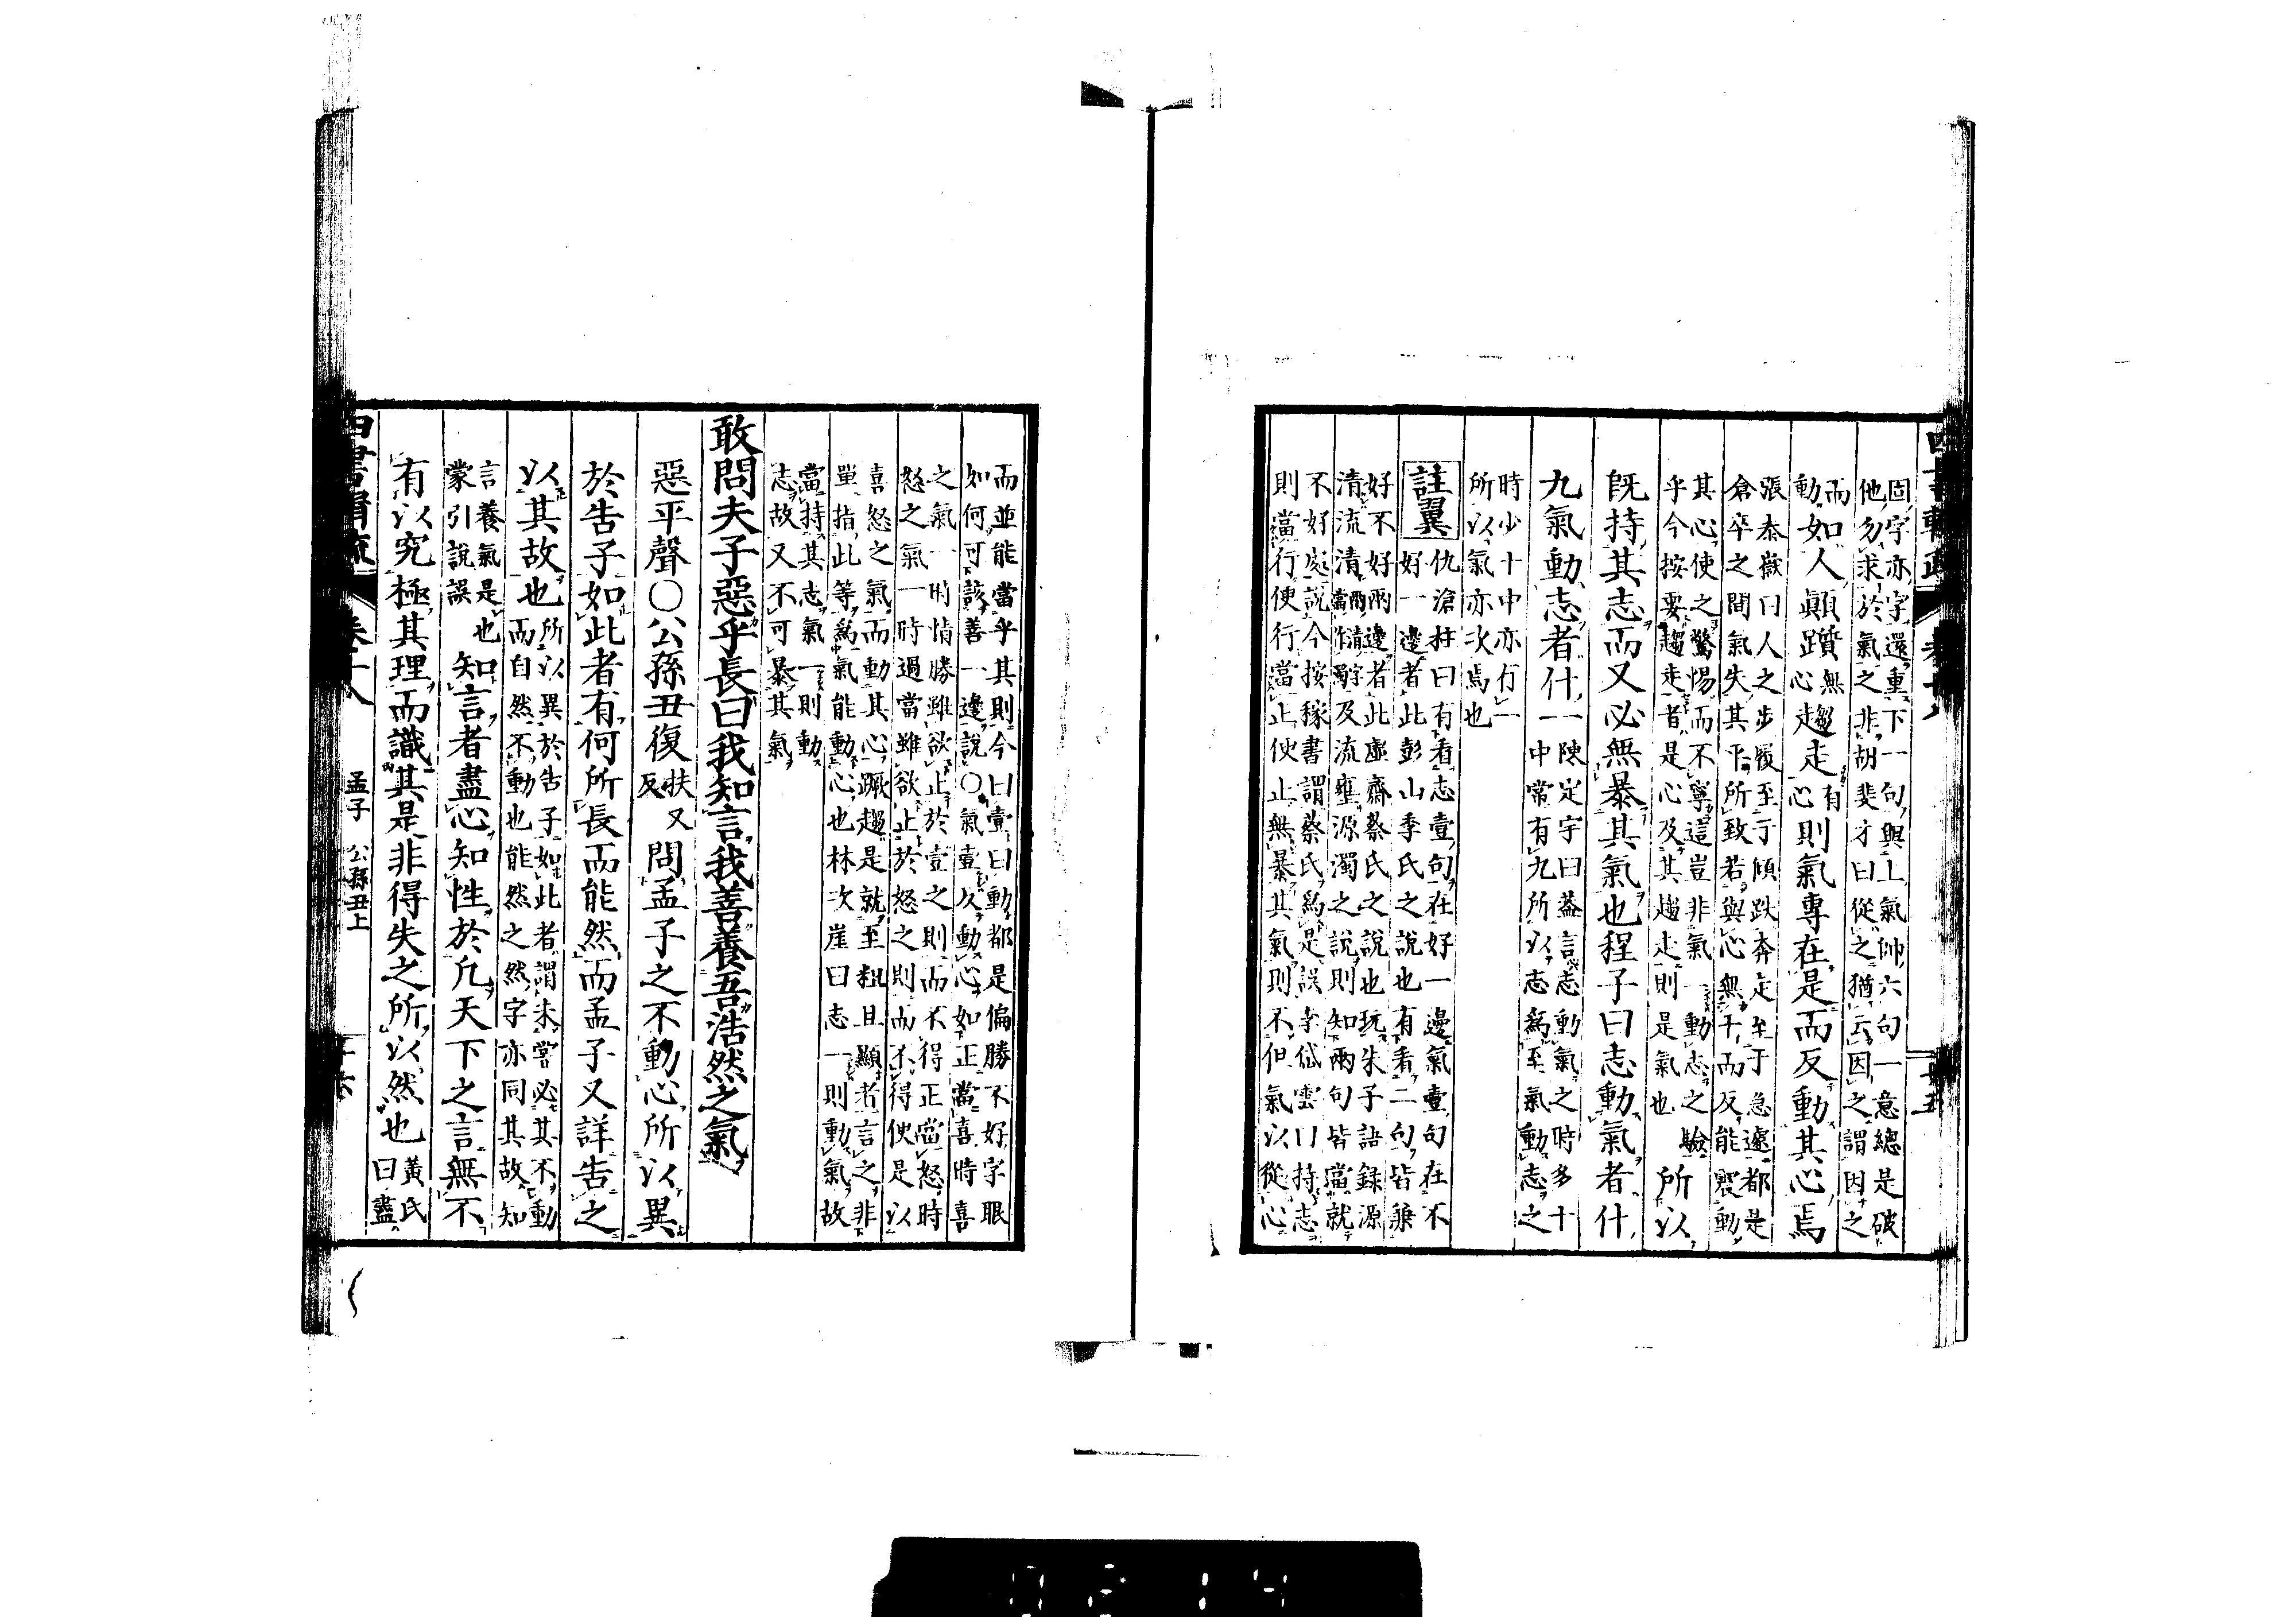 固字亦字還重下一句與上氣帥六句一意總是破
他勿求於氣之非胡斐才曰從之猶云因之謂因之
而動如人顛躓無心趨走有心則氣專在是而反動其心焉
張泰嶽曰人之步履至于傾跌奔走至于急遽都是
倉卒之間氣失其平所致若與心無干而反能震動
其心使之驚惕而不寧這豈非氣一動志之驗
乎今按要趨走者是心及其趨走則是氣也
所以
既持其志而又必無暴其氣也程子曰志動氣者什
九氣動志者什一
陳定宇曰蓋言志動氣之時多十
中常有九所以志爲至氣動志之
時少十中亦有一
所以氣亦次焉也
註翼
仇滄柱曰有看志壹句在好一邊氣壹句在不
好一邊者此彭山季氏之說也有看二句皆兼
好不好兩邊者此虛齋蔡氏之說也玩朱子語録源
清流清當兩濁字及流壅源濁之說則知兩句皆當就
不好處說今按稼書謂蔡氏爲是誤李岱雲曰持志
則當行便行當止便止無暴其氣則不但氣以從心
而並能當乎其則今曰壹曰動都是偏勝不好字眼
如何可該善一邊說○氣壹反動心如正當喜時喜
之氣一時情勝雖欲止於壹之則而不得正當怒時
怒之氣一時過當雖欲止於怒之則而不得便是以
喜怒之氣而動其心蹶趨是就至粗且顯者言之非
單指此等爲氣能動心也林次崖曰志一則動氣故
當持其志氣一則動
志故又不可暴其氣
敢問夫子惡乎長曰我知言我善養吾浩然之氣
惡平聲○公孫丑復扶又反問孟子之不動心所以異
於告子如此者有何所長而能然而孟子又詳告之
以其故也
所以異於告子如此者謂未嘗必其不動
而自然不動也能然之然字亦同其故知
言養氣是也
蒙引說誤
知言者盡心知性於凡天下之言無不
有以究極其理而識其是非得失之所以然也
黃氏
曰盡
孟子 公孫丑上